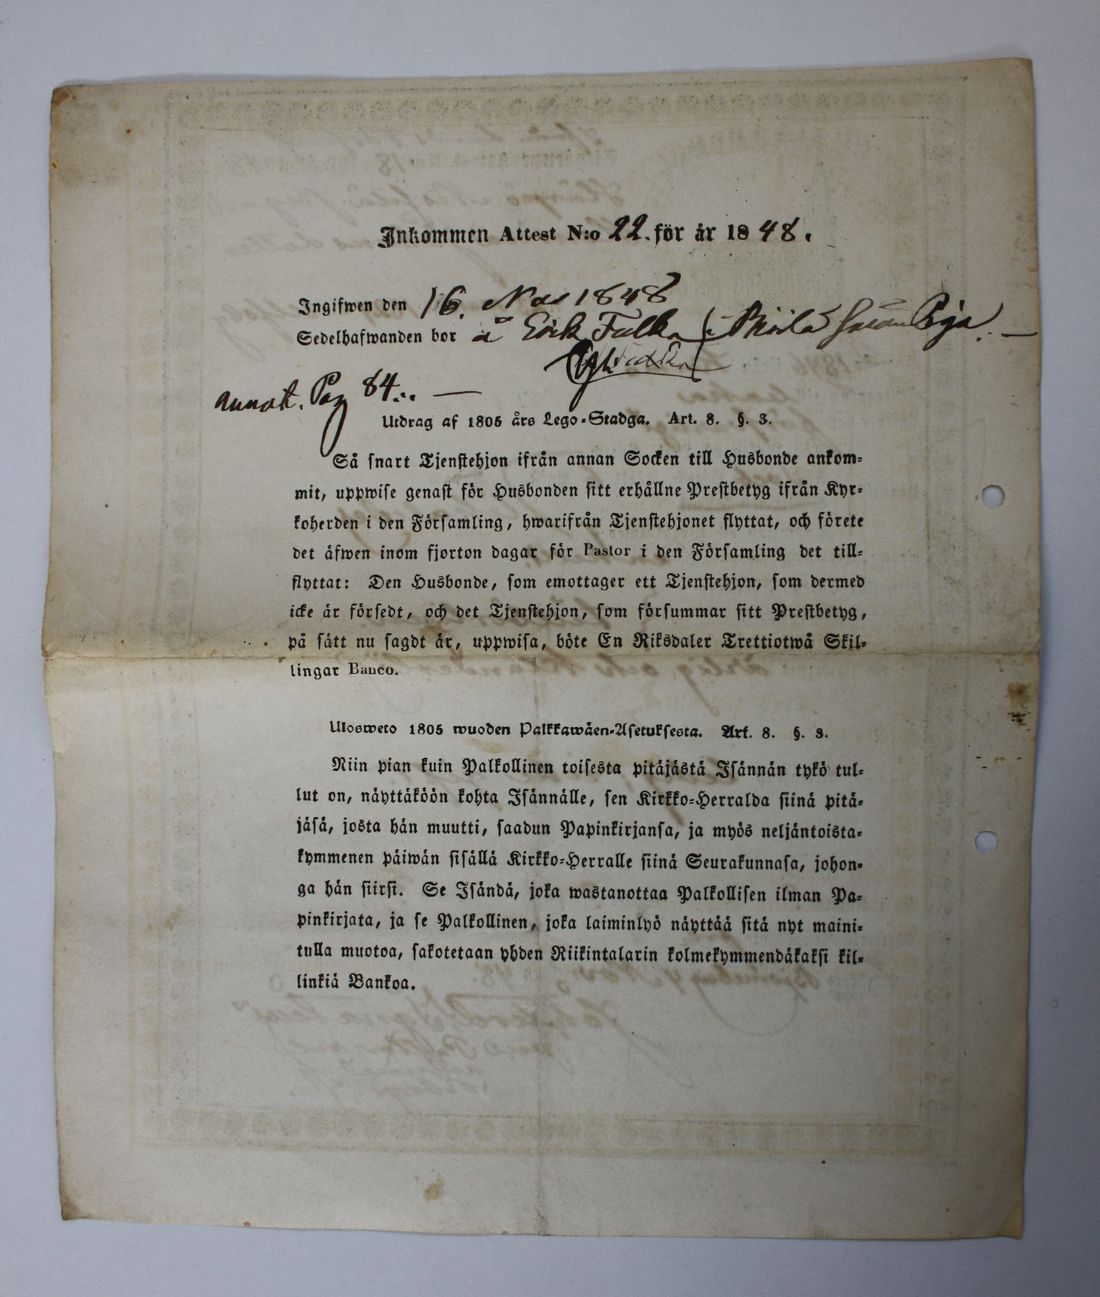 Inkommen Attest N:o 22. för år 1848.
Ingifwen den 16. Nov 1848
Sedelhafwanden bor å Erik Falka i
annot. Pag 84..
Utdrag af 1805 års Lego-Stadga. Art. 8. §. 3.
Så snart Tjenstehjon ifrån annan Socken till Husbonde ankom-
mit, uppwise genast för Husbonden sitt erhållne Prestbetyg ifrån Kyr-
koherden i den Församling, hwarifrån Tjenstehjonet flyttat, och förete
det äfwen inom fjorton dagar för Pastor i den Församling det till-
flyttat: Den Husbonde, som emottager ett Tjenstehjon, som dermed
icke är försedt, och det Tjenstehjon, som försummar sitt Prestbetyg,
på sätt nu sagdt är, uppwisa, böte En Riksdaler Trettiotwå Skil-
lingar Banco.
Ulosweto 1805 wuoden Palkkawäen-Asetuksesta. Art. 8. §. 3.
Niin pian kuin Palkollinen toisesta pitäjästä Isännän tykö tul-
lut on, näyttäköön kohta Isännälle, sen Kirkko-Herralda siinä pitä-
jäsä, josta hän muutti, saadun Papinkirjansa, ja myös neljäntoista-
kymmenen päiwän sisällä Kirkko-Herralle siinä Seurakunnasa, johon-
ga hän siirsi. Se Isändä, joka wastanottaa Palkollisen ilman Pa-
pinkirjata, ja se Palkollinen, joka laiminlyö näyttää sitä nyt maini-
tulla muotoa, sakotetaan yhden Riikintalarin kolmekymmendäkaksi kil-
linkiä Bankoa.